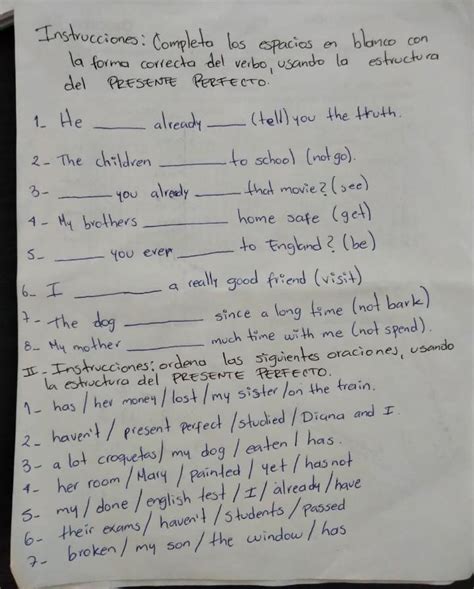 Instrucciones: Completa los espacios en blanco con
la forma correcta del verbo, usando la estructura
del PRESENTE PERFECTO.
1- He ______ already ______ (tell) you the truth.
2- The children ______ to school (not go).
3- ______ you already ______ that movie? (see)
4- My brothers ______ home safe (get)
5- ______ you ever ______ to England? (be)
6- I ______ a really good friend (visit)
7- The dog ______ since a long time (not bark)
8- My mother ______ much time with me (not spend).
II- Instrucciones: ordena las siguientes oraciones, usando
la estructura del PRESENTE PERFECTO.
1- has / her money / lost / my sister / on the train.
2- haven't / present perfect / studied / Diana and I.
3- a lot croquetas / my dog / eaten / has.
4- her room / Mary / painted / yet / has not
5- my / done / english test / I / already / have
6- their exams / haven't / students / passed
7- broken / my son / the window / has